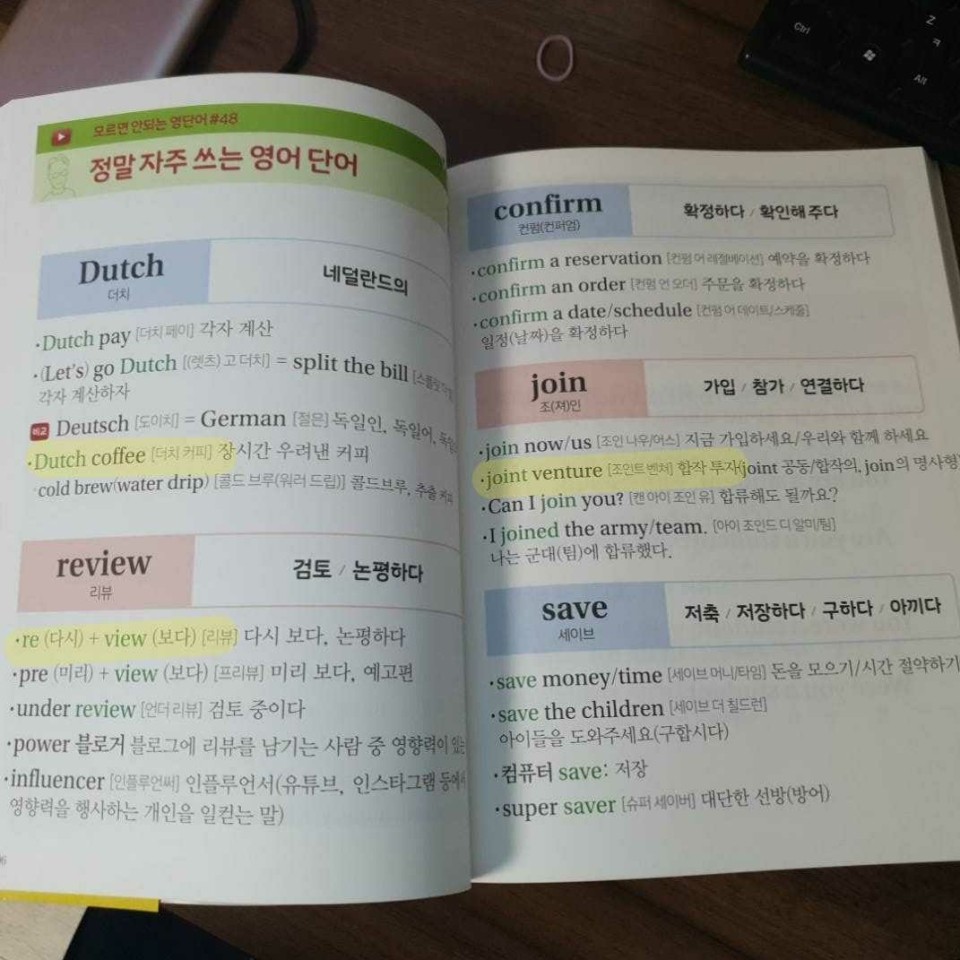 모르면 안되는 영단어 #48
정말 자주 쓰는 영어 단어
Dutch
더치
네덜란드의
·Dutch pay [더치 페이] 각자 계산
·(Let's) go Dutch [(렛츠) 고 더치] = split the bill
각자 계산하자
비교 Deutsch [도이치] = German [절믄] 독일인, 독일어,
·Dutch coffee [더치 커피] 장시간 우려낸 커피
·cold brew(water drip) [콜드 브루(워러 드립)] 콜드브루, 추출 커피
review
리뷰
검토 / 논평하다
·re (다시) + view (보다) [리뷰] 다시 보다, 논평하다
·pre (미리) + view (보다) [프리뷰] 미리 보다, 예고편
·under review [언더 리뷰] 검토 중이다
·power 블로거 블로그에 리뷰를 남기는 사람 중 영향력이 있는
·influencer [인플루언써] 인플루언서(유튜브, 인스타그램 등에서
영향력을 행사하는 개인을 일컫는 말)
confirm
컨펌(컨퍼엄)
확정하다 / 확인해 주다
·confirm a reservation [컨펌 어 레절베이션] 예약을 확정하다
·confirm an order [컨펌 언 오더] 주문을 확정하다
·confirm a date/schedule [컨펌 어 데이트/스케줄]
일정(날짜)을 확정하다
join
조(져)인
가입 / 참가 / 연결하다
·join now/us [조인 나우/어스] 지금 가입하세요/우리와 함께 하세요
·joint venture [조인트 벤처] 합작 투자(joint 공동/합작의, join의 명사형)
·Can I join you? [캔 아이 조인 유] 합류해도 될까요?
·I joined the army/team. [아이 조인드 디 알미/팀]
나는 군대(팀)에 합류했다.
save
세이브
저축 / 저장하다 / 구하다 / 아끼다
·save money/time [세이브 머니/타임] 돈을 모으기/시간 절약하기
·save the children [세이브 더 칠드런]
아이들을 도와주세요(구합시다)
·컴퓨터 save: 저장
·super saver [슈퍼 세이버] 대단한 선방(방어)
Ctrl
Alt
Z
ㅋ